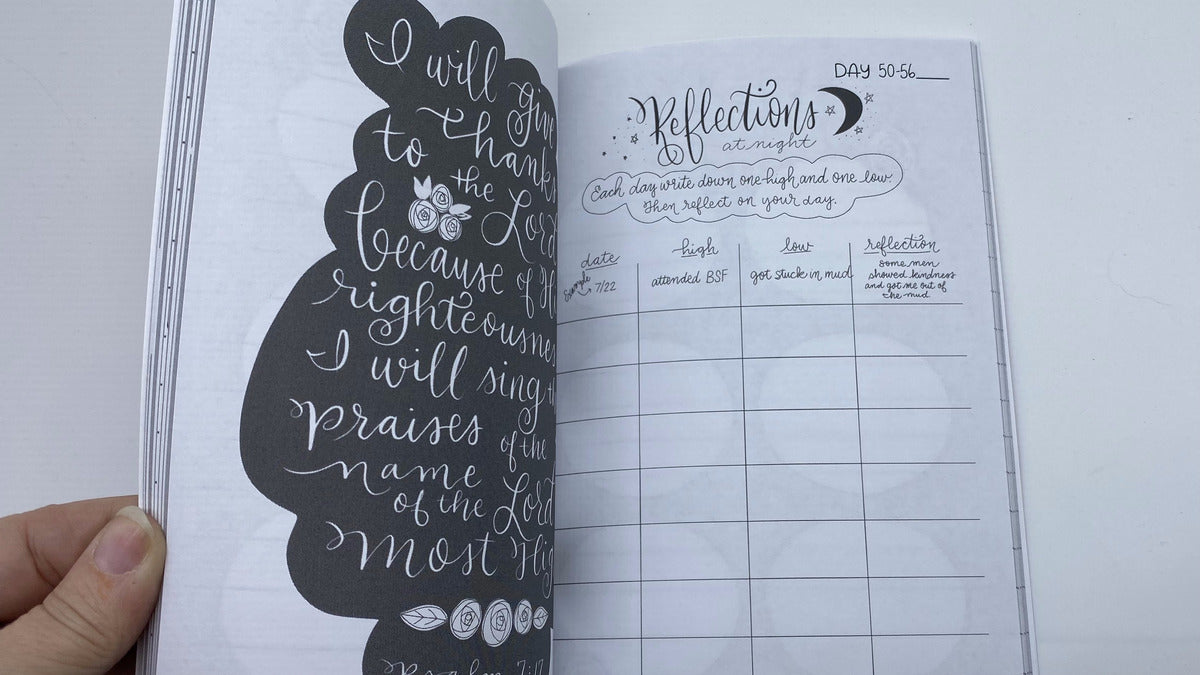 I will give
thanks
to the Lord
because of
righteousne
I will sing
praises of the
name
of the Lord
most Hig
Psalm 7:17
DAY 50-56
Reflections
at night
Each day write down one high and one low.
Then reflect on your day.
date high low reflection
Example 7/22
attended BSF
got stuck in mud
some men
showed kindness
and got me out of
the mud